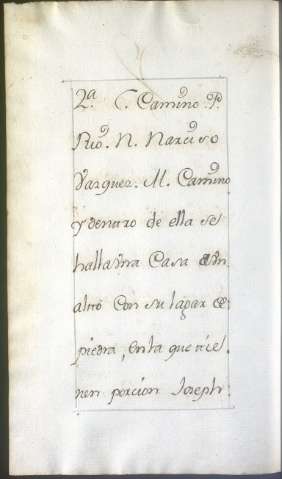 2ª. C. Camino. P.
Rio. N. Narciso
Vazquez. M. Camino
y dentro de ella se
halla vna Casa de vn
alto con su lagar de
piedra, en la que tie-
nen porcion Joseph